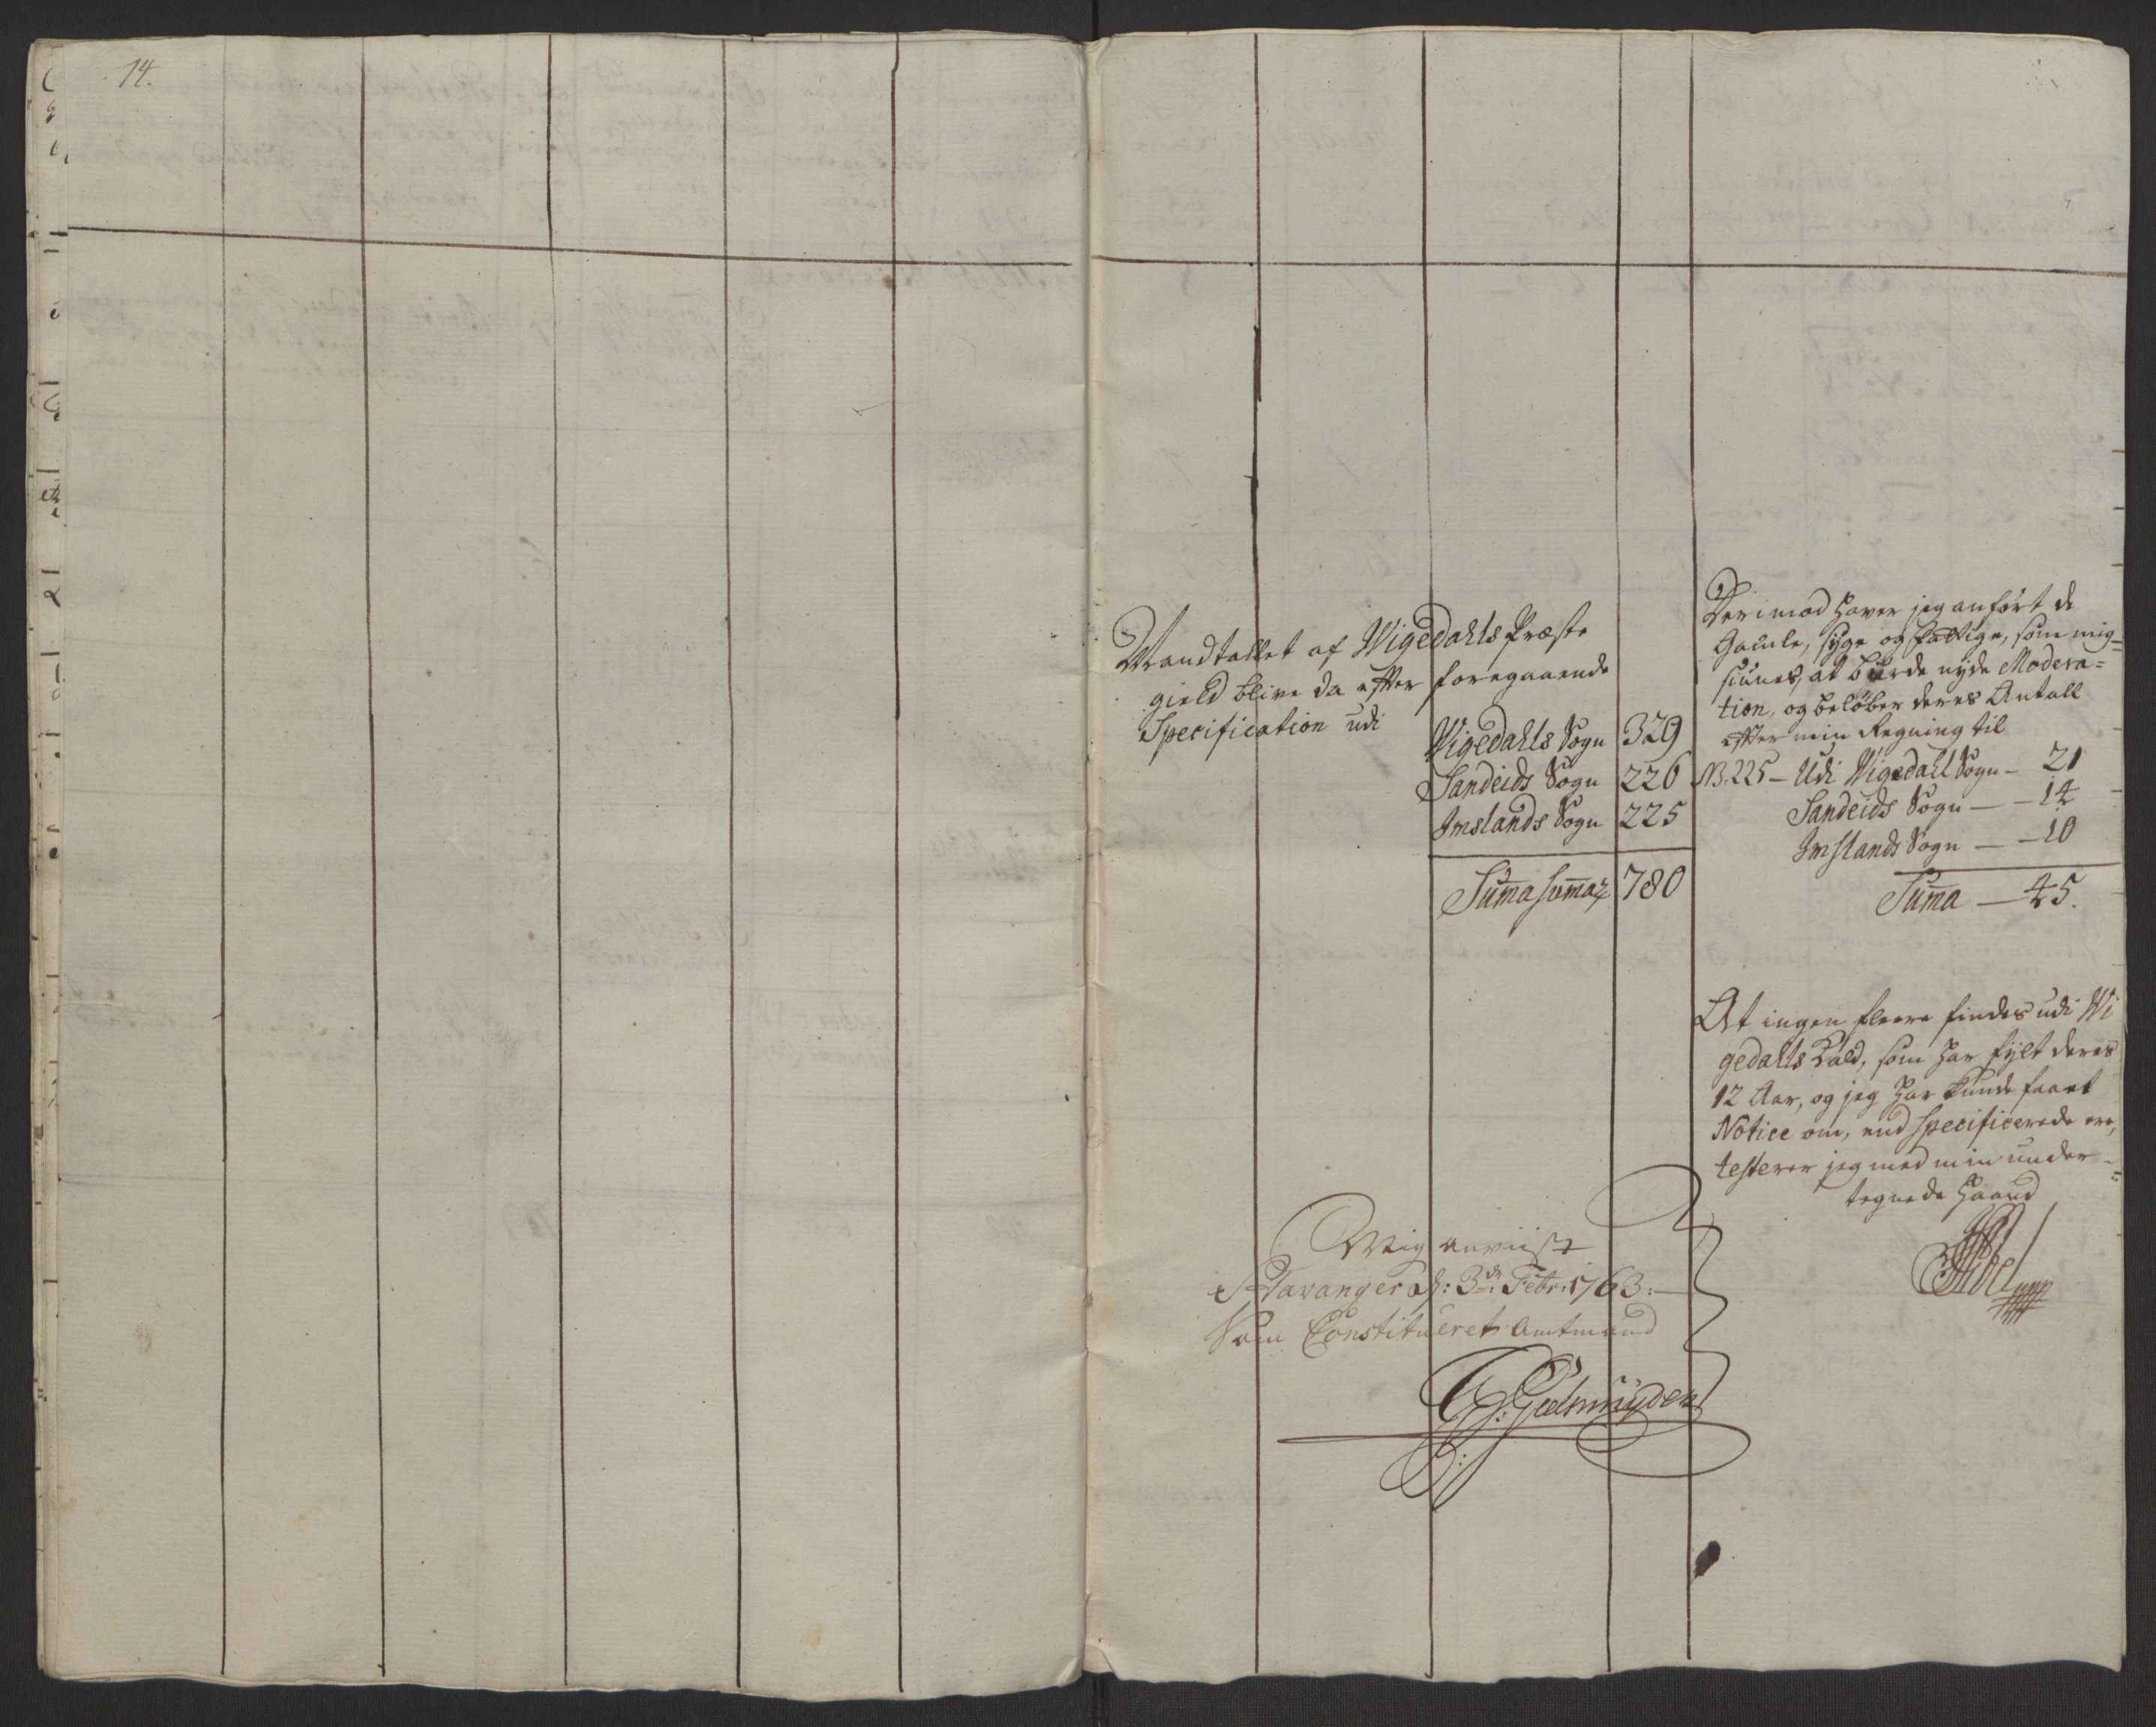 14.
Mandtallet af Wigedahls Præste
gield blive da efter foregaaende
Specification udi
Wigedahls Sogn 329
Sandeids Sogn 226
Imslands Sogn 225
Suma Sumar 780
Derimod haver jeg anført de
Gamle, syge og fattige, som mig
siunes, at burde nyde Modera=
tion, og beløber deres Antall
efter min Regning til
NB. 225 - Udi Wigedahl Sogn - 21
Sandeids Sogn - - 14
Imslands Sogn - - 10
Suma - 45.
At ingen fleere findes udi Wi
gedahls Kald, som har fylt deres
12 Aar, og jeg har kunde faaet
Notice om, end specificerede ere,
testerer jeg med min under-
tegnede Haand
Abel
Mig anviist
Stavanger d: 3de Febr: 1763:
Som Constitueret Amtmand
Geelmuyden